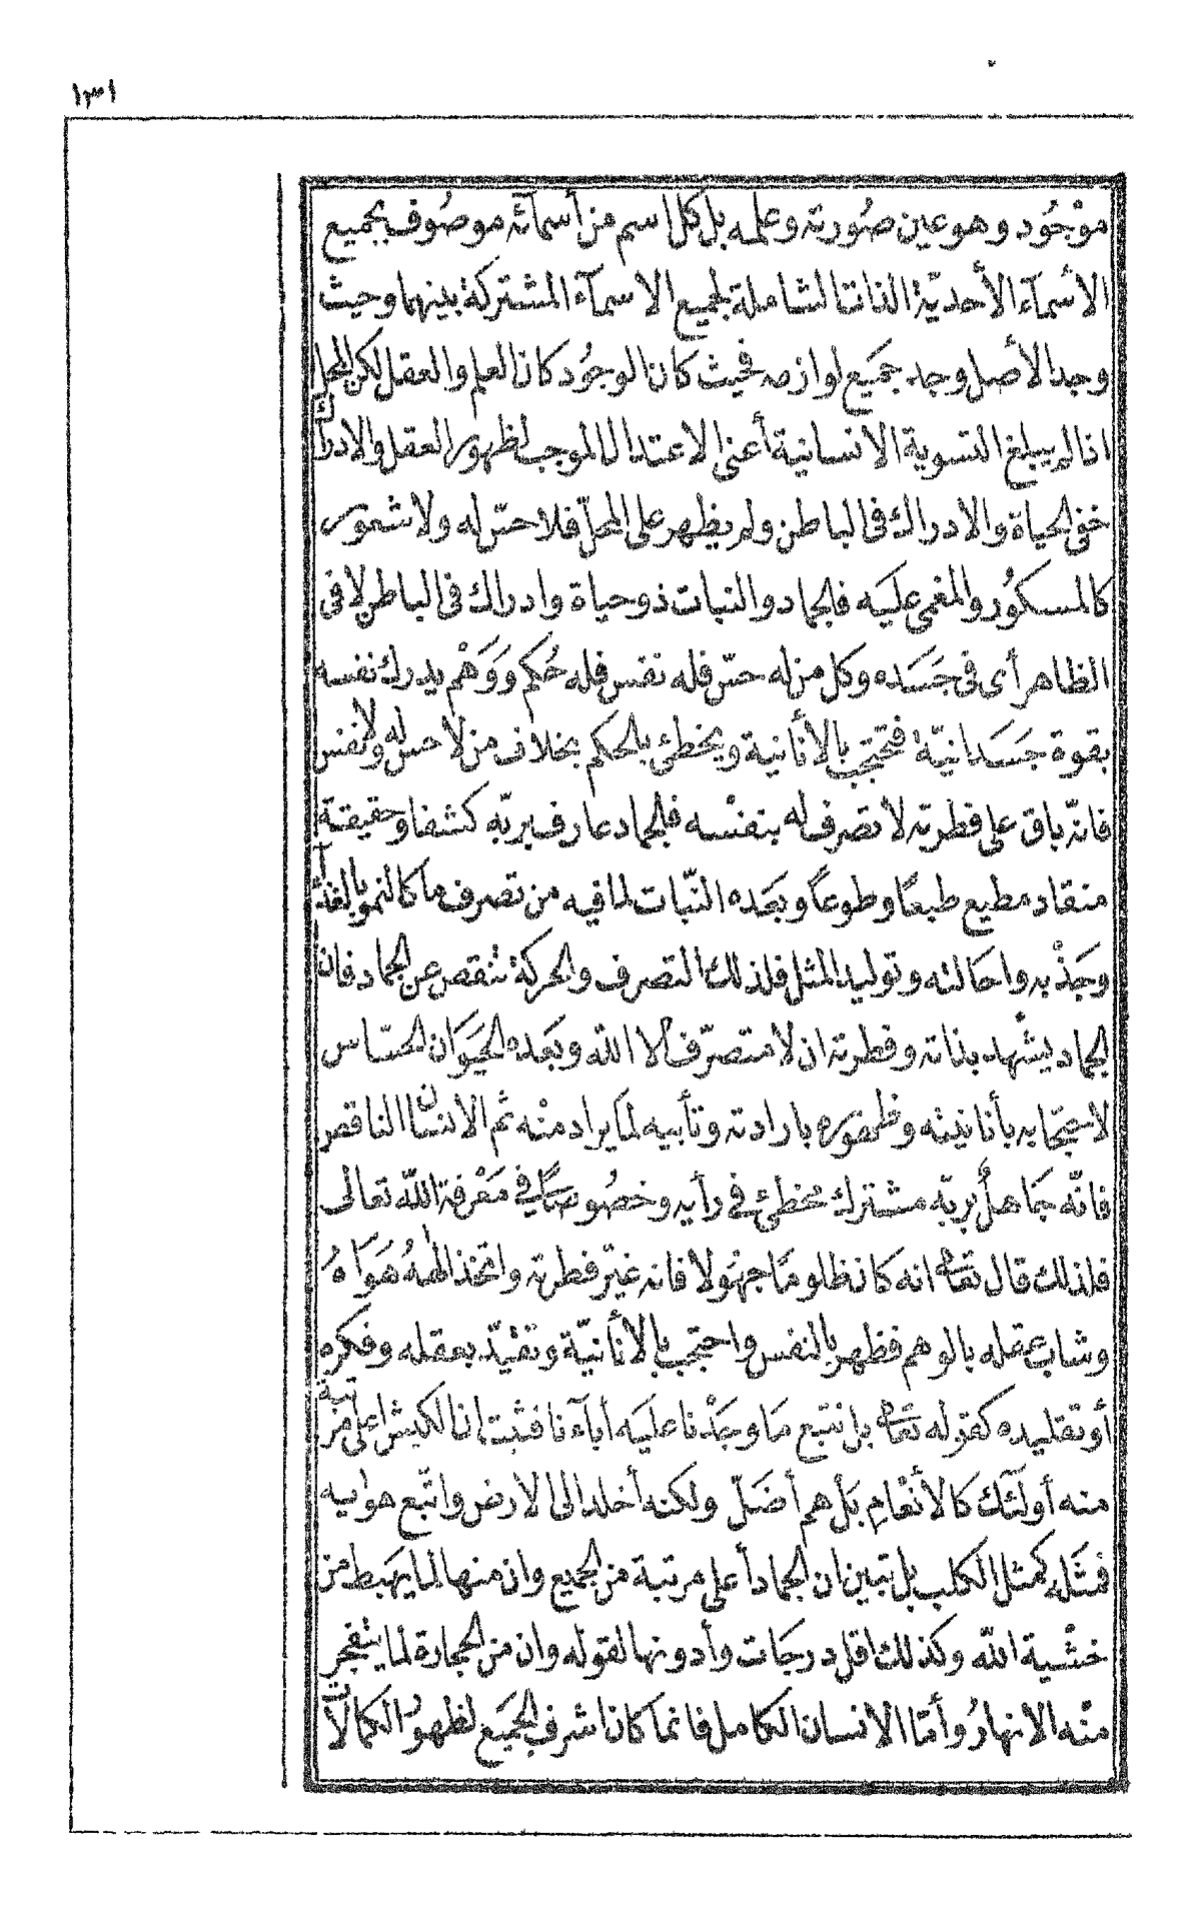 ١٣١
موجُود وهو عين صُورته وعلمه بل كل اسم من أسمآئه موصُوف بجميع
الأسمآء الأحديّة الذاتا لشاملة لجميع الاسمآء المشتركة بينهما وحيث
وجد الأصل وجد جَميع لوازمه فحيث كان الوجُود كان العلم والعقل لكن المحل
اذا لم يبلغ التسوية الانسانية أعنى الاعتدال الموجب لظهور العقل والادراك
خفى الحياة والادراك فى الباطن ولم يظهر على المحلّ فلا حسّ له ولا شعور
كالمسكوُر والمغمى عليَه فالجماد والنبات ذو حياة وادراك فى الباطن لا فى
الظاهر أى فى جَسَده وكل من له حسّ فله نفس فله حُكم وَوَهْم يدرك نفسه
بقوة جَسَدانيّة فتحتجب بالأنانية ويخطئ بالحكم بخلاف من لا حس له ولا نفس
فانّه باق على فطرته لا تصرف له بنفْسه فالجماد عارف بربّه كشفا وحقيقة
منقاد مطيع طبعًا وطوعاً وبَعَده النّبات لما فيه من تصرف ما كالنمو بالغذآء
وجَذْبه واحالته وتوليد المثل فلذلك التصرف والحركة تنقص عن الجماد فان
الجماد يشْهد بذاته وفطرته ان لا متصرّف الا اللّه وبَعَده الحيَوَان الحسّاس
لاحتجابه بأنانيته وظهوره بارادته وتأبيه لما يراد منْه ثم الانسان الناقص
فانّه جَاهلٌ بربّه مشترك مخطئ فى رأيه وخصُوصًا فى مَعْرفة اللّه تعالى
فلذلك قال تعالى انه كان ظلومًا جهُولا فانه غيّر فطرته واتخذ الٰههُ هَوَاهُ
وشاب عقله بالوهم فظهر بالنفس واحتجب بالأنانيّة وتقيّد بعقله وفكره
أو تقليده كقوله تعالى بل نتبع مَا وجَدْنا عليَه أباءَنا فثبت ان الكبش اعلى مرتبة
منه أولٓئك كالأنعْامِ بَل هم أضَلّ ولكنه أخلد الى الارض واتّبع هوايه
فمثَله كمثل الكلب بل تبين ان الجماد أعلى مرتبة من الجميع وان منها لما يهبط من
خشْية اللّه وكذلك اقل درجَات وأدونها لقوله وان من الحجارة لما يتفجر
منْه الانهارُ وأمّا الانسان الكامل فانما كان اشرف الجميَع لظهوُر الكمالات